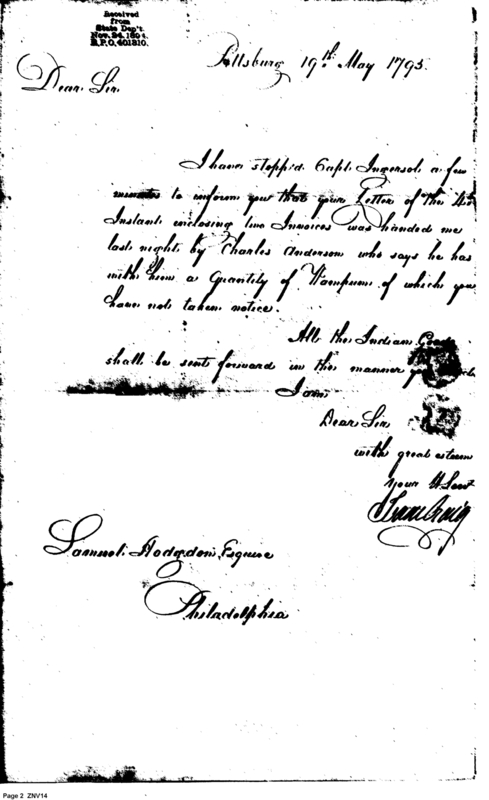 Received
from
State Dep't.
Nov. 24. 1894.
R.P.O. 401310.
Pittsburg 19th May 1795.
Dear Sir.
I have stopp'd Capt. Ingersol a few
minutes to inform you that your Letter of the 4th
Instant enclosing two Invoices was handed me
last night by Charles Anderson who says he has
with him a Quantity of Wampum of which you
have not taken notice.
All the Indian Goods
shall be sent forward in the manner
I am
Dear Sir
with great esteem
Your H. Servt
Isaac Craig
Samuel Hodgdon, Esquire
Philadelphia
Page 2 ZNV14